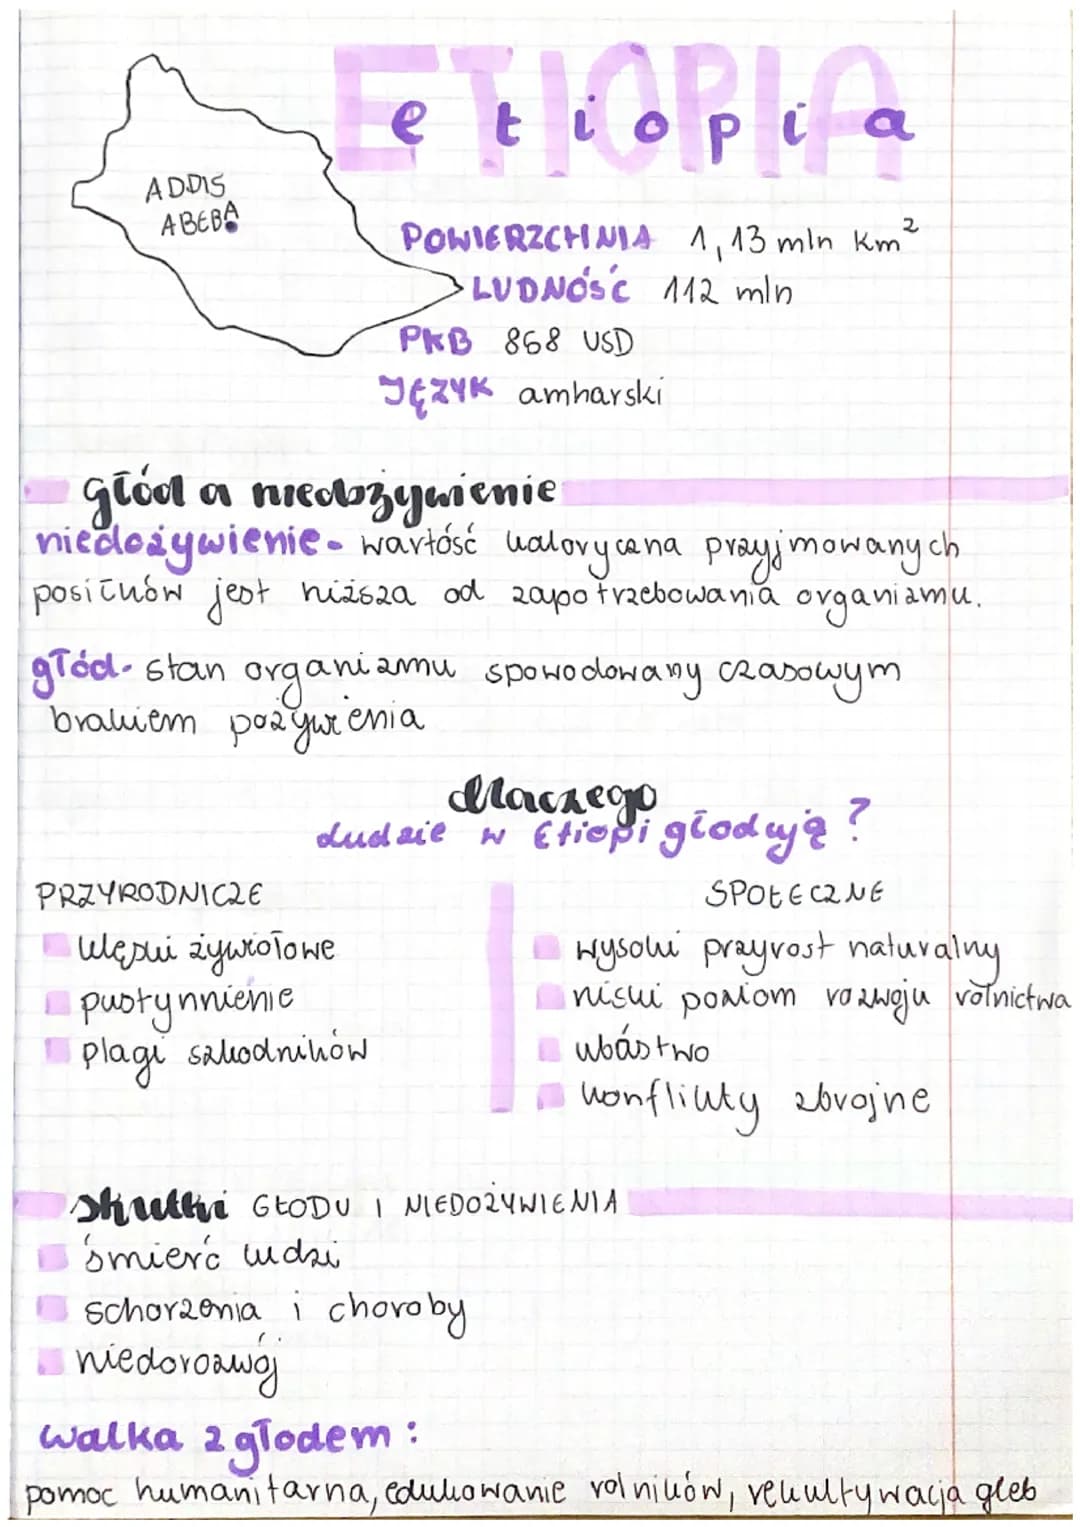 ETIOPIA
etiopia
ADDIS
ABEBA
POWIERZCHNIA 1,13 mln km²
LUDNOŚĆ 112 mln
PKB 868 USD
JĘZYK amharski
głód a niedożywienie
niedożywienie- wartość kaloryczna przyjmowanych
posiłków jest niższa od zapotrzebowania organizmu.
głód- stan organizmu spowodowany czasowym
brakiem pożywienia
dlaczego
ludzie w Etiopi głodują?
PRZYRODNICZE
klęski żywiołowe
pustynnienie
plagi szkodników
SPOŁECZNE
wysoki przyrost naturalny
niski poziom rozwoju rolnictwa
ubóstwo
konflikty zbrojne
skutki GŁODU I NIEDOŻYWIENIA
śmierć ludzi
schorzenia i choroby
niedorozwój
walka z głodem:
pomoc humanitarna, edukowanie rolników, rekultywacja gleb